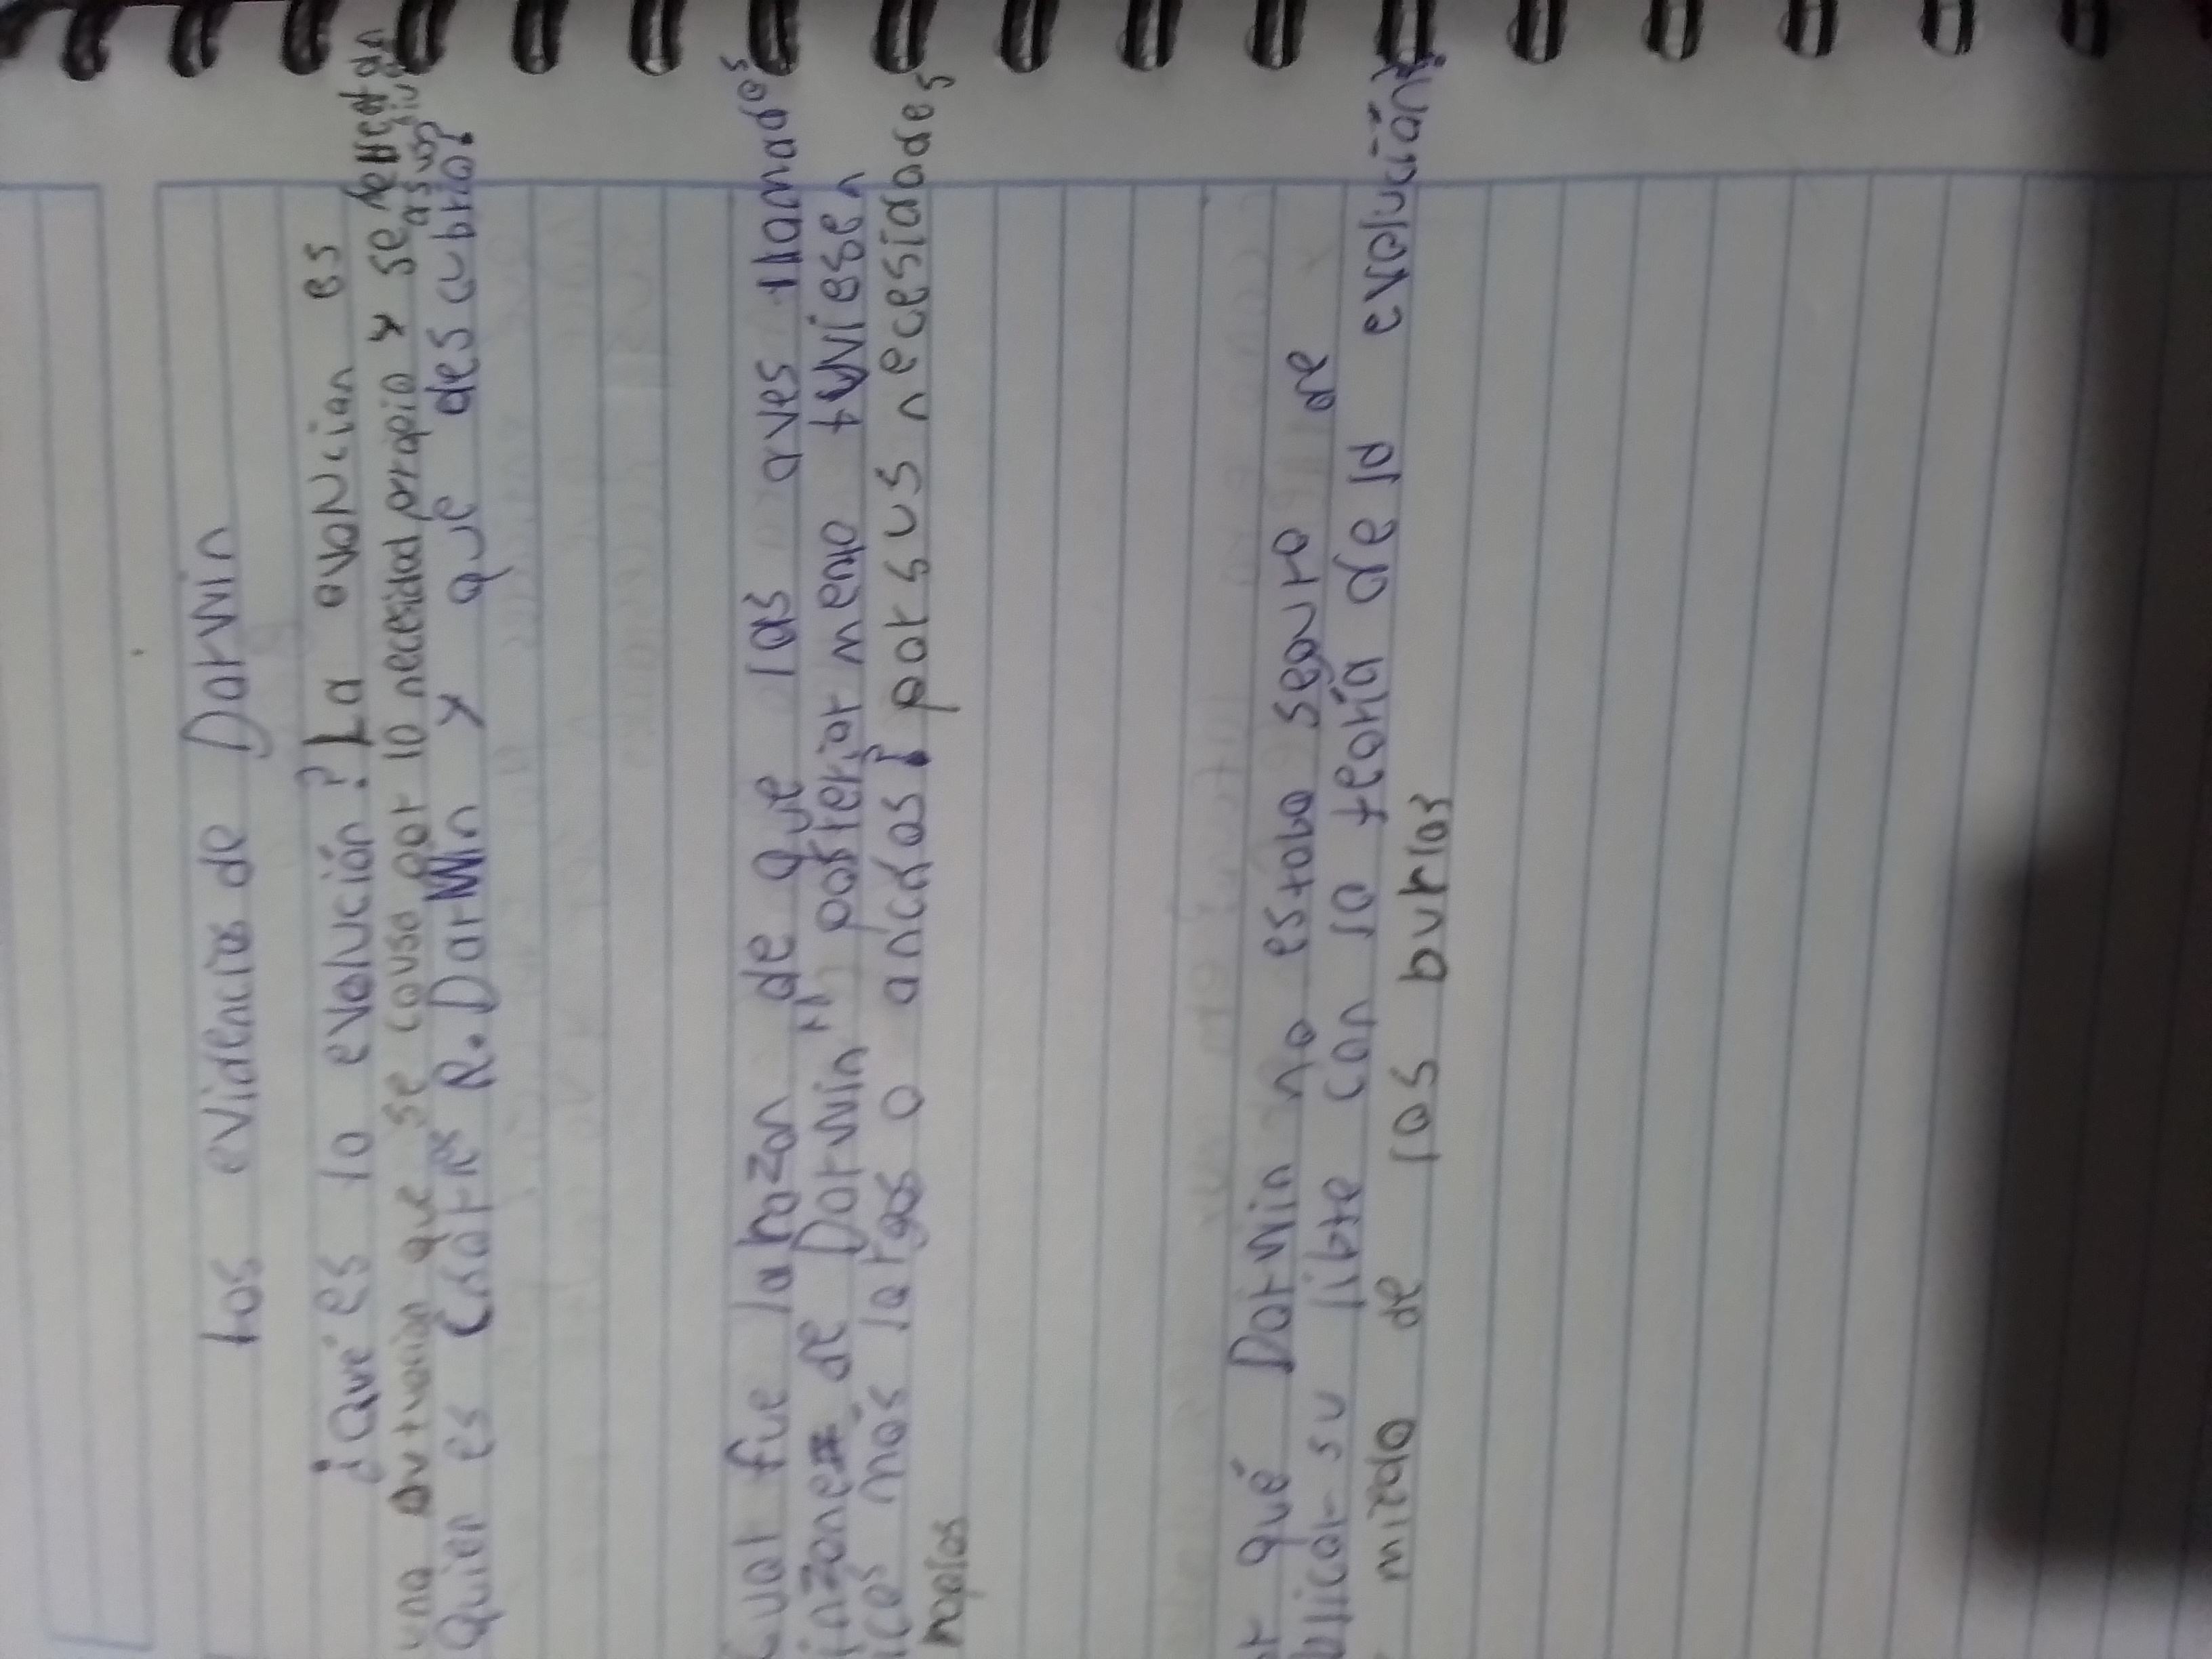 Las evidencias de Darwin
¿Qué es la evolución? La evolucian es
una que se causa por la necesidad propia y se
a sus
Quien es Charles R. Darwin y que descubrio?
Cual fue la razon de que las aves llamados
de Darwin" posteriormente tuviesen
más largos o anchos? por sus necesidades
qué Darwin no estaba seguro de
su libre con la teoría de la evolución?
miedo de las burlas